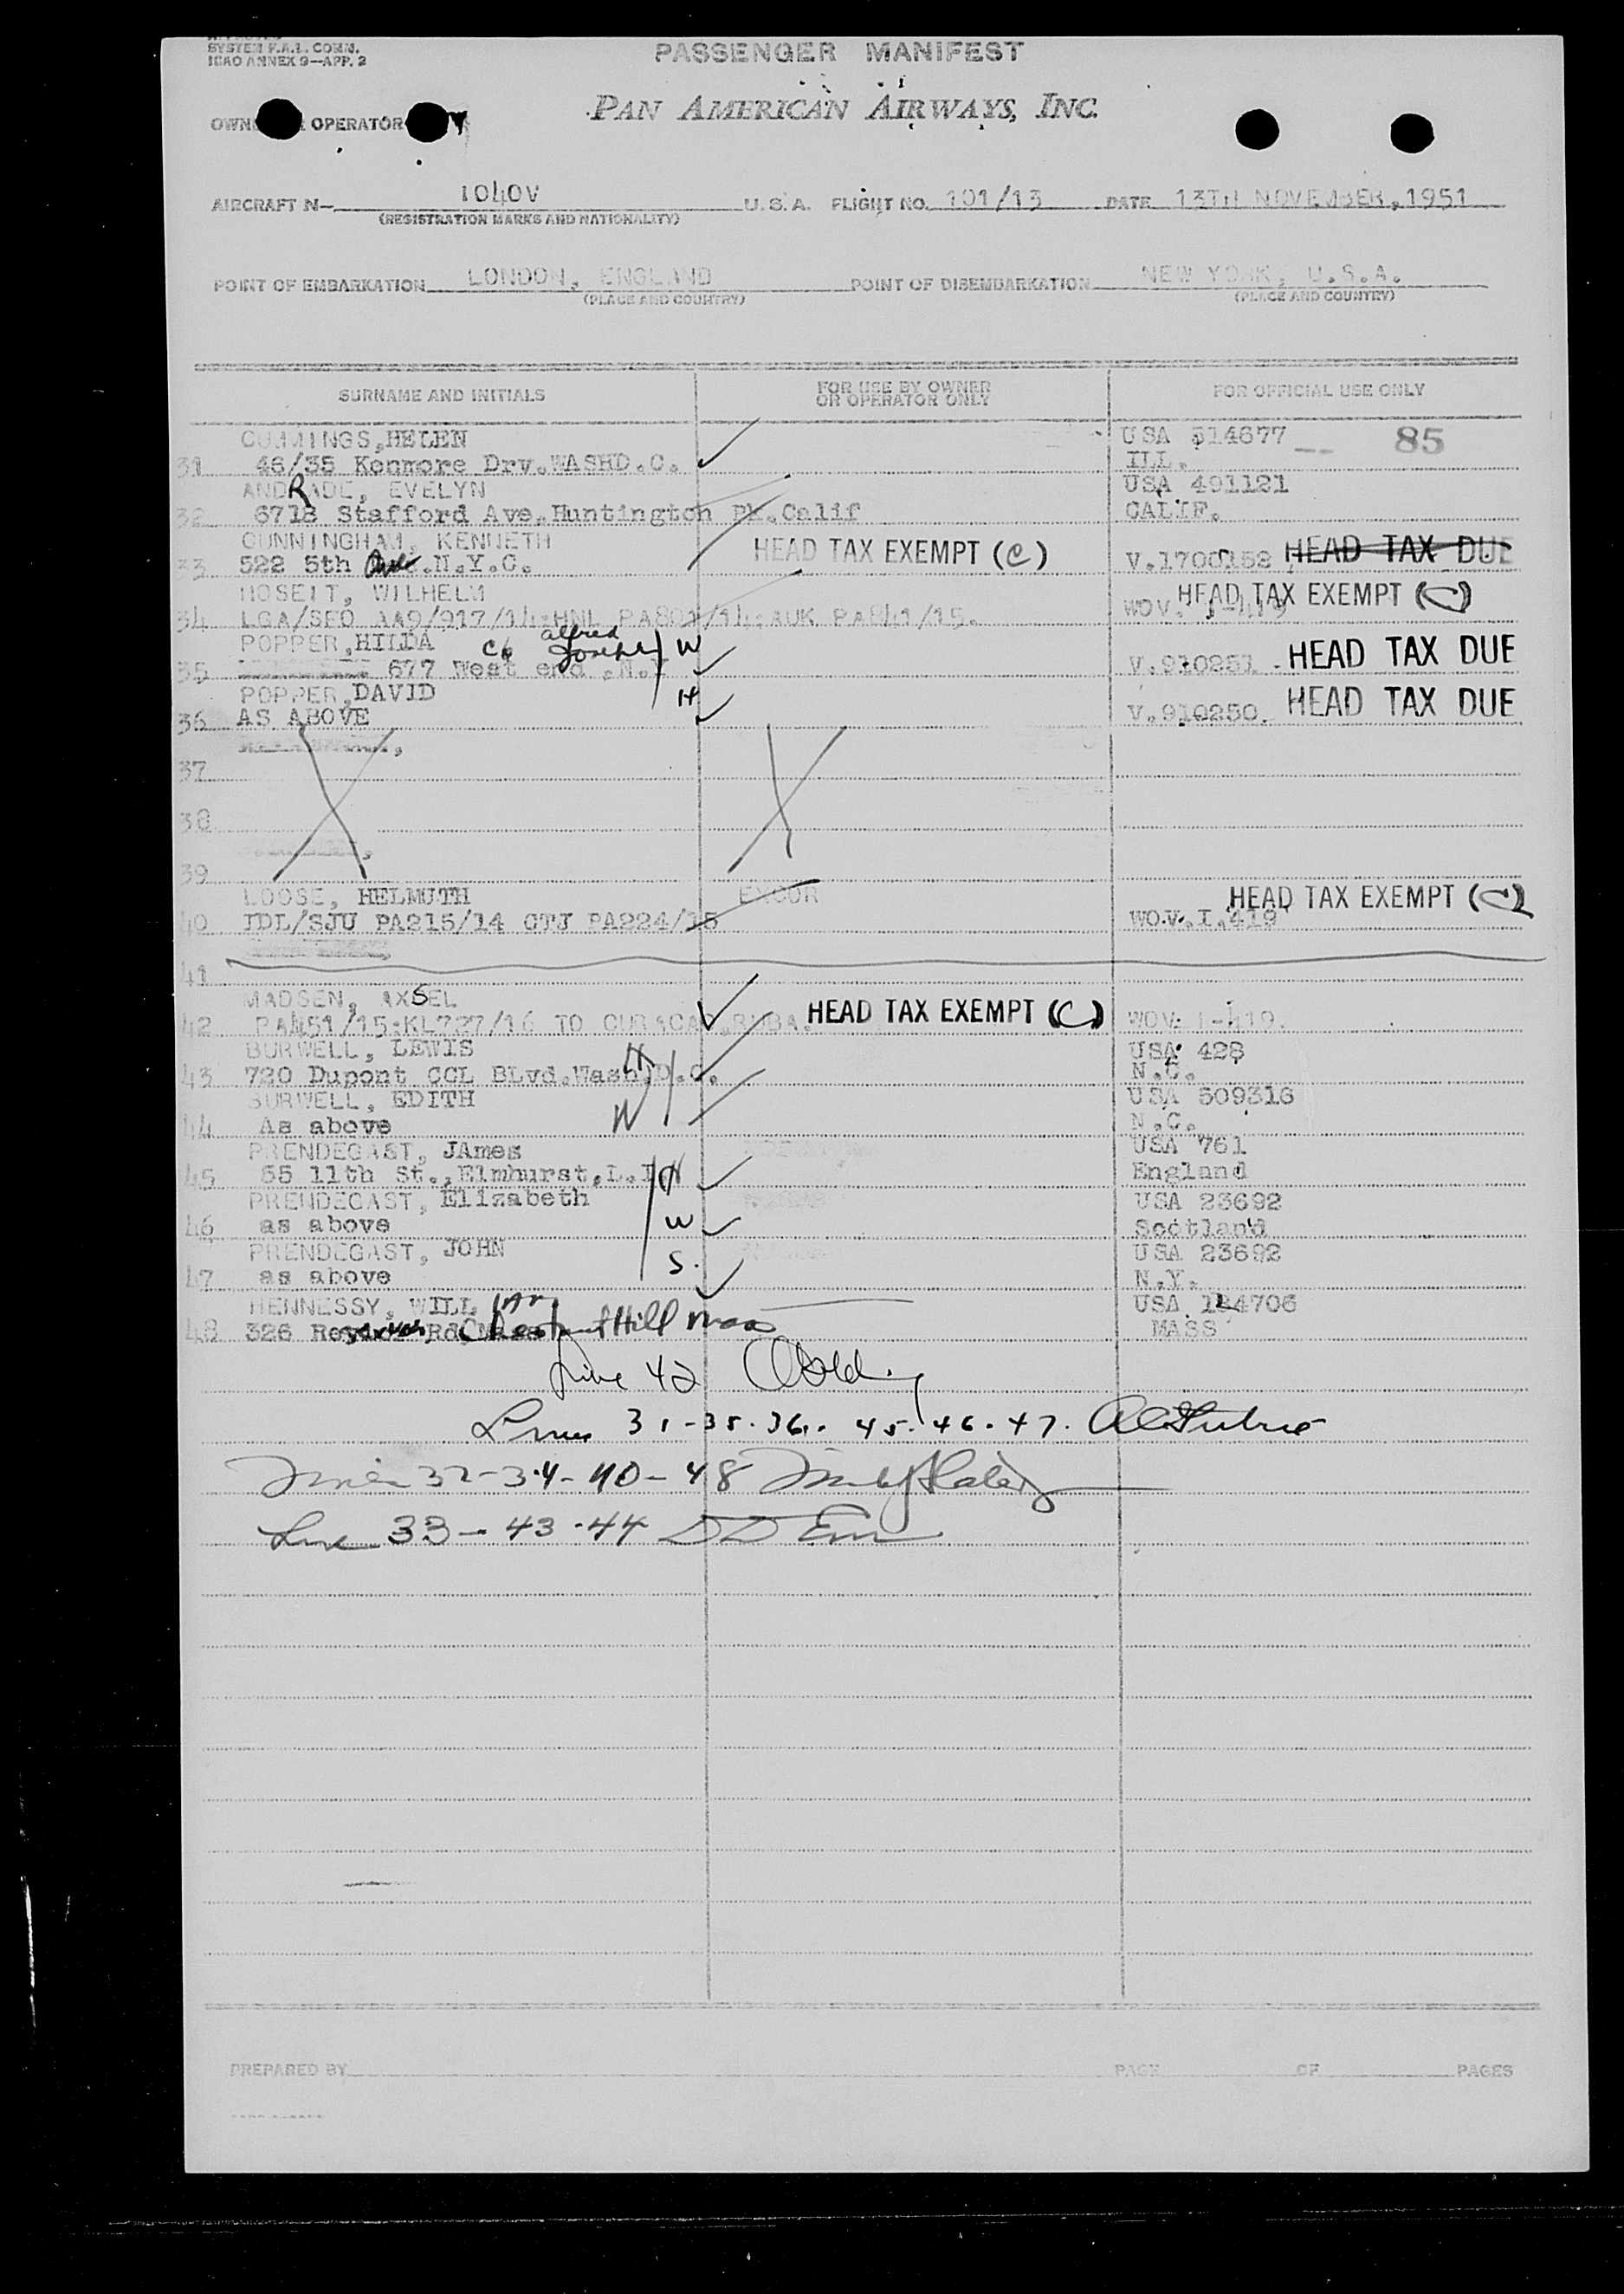 SYSTEM F.A.L. COMM.
ICAO ANNEX 9—APP. 2
PASSENGER MANIFEST
PAN AMERICAN AIRWAYS, INC.
OPERATOR
AIRCRAFT N— 1040V U.S.A. FLIGHT NO. 101/13 DATE 13TH NOVEMBER, 1951
(REGISTRATION MARKS AND NATIONALITY)
POINT OF EMBARKATION LONDON, ENGLAND POINT OF DISEMBARKATION NEW YORK, U.S.A.
(PLACE AND COUNTRY) (PLACE AND COUNTRY)
SURNAME AND INITIALS FOR USE BY OWNER OR OPERATOR ONLY FOR OFFICIAL USE ONLY
CUMMINGS, HELEN USA 514677 85
31 46/35 Kenmore Drv. WASHD.C. ILL.
ANDRADE, EVELYN USA 491121
32 6718 Stafford Ave. Huntington Pk. Calif CALIF.
CUNNINGHAM, KENNETH HEAD TAX EXEMPT (C) HEAD TAX DUE
33 522 5th Ave. N.Y.C. V.1700152
WILHELM HEAD TAX EXEMPT (C)
34 LGA/SFO AA9/917/14:HNL PA801/14:AUK PA841/15. WOV. I-419
POPPER, HILDA c/o alfred Joseph W
35 677 West end, N.Y V.910251 HEAD TAX DUE
POPPER, DAVID H
36 AS ABOVE V.910250. HEAD TAX DUE
37
38
39
LOOSE, HELMUTH EXCOR HEAD TAX EXEMPT (C)
40 IDL/SJU PA215/14 CTJ PA224/15 WO.V.I.419
41
MADSEN, AXSEL HEAD TAX EXEMPT (C)
42 PA451/15:KL727/16 TO CURACAO, RUBA. WOV: I-419.
BURWELL, LEWIS H USA 428
43 720 Dupont CCL BLvd. Wash, D.C. N.C.
BURWELL, EDITH USA 509316
44 As above W N.C.
PRENDEGAST, JAmes USA 761
45 55 11th St., Elmhurst, L.I H England
PRENDEGAST, Elizabeth USA 23692
46 as above W Scotland
PRENDEGAST, JOHN USA 23692
47 as above S. N.Y.
HENNESSY, WILL iam USA 124706
48 326 Rd. Chestnut Hill Mass MASS
Line 42
Lines 31-35-36. 45.46.47.
Lines 32-34-40-48
Line 33-43-44
PREPARED BY PAGE OF PAGES